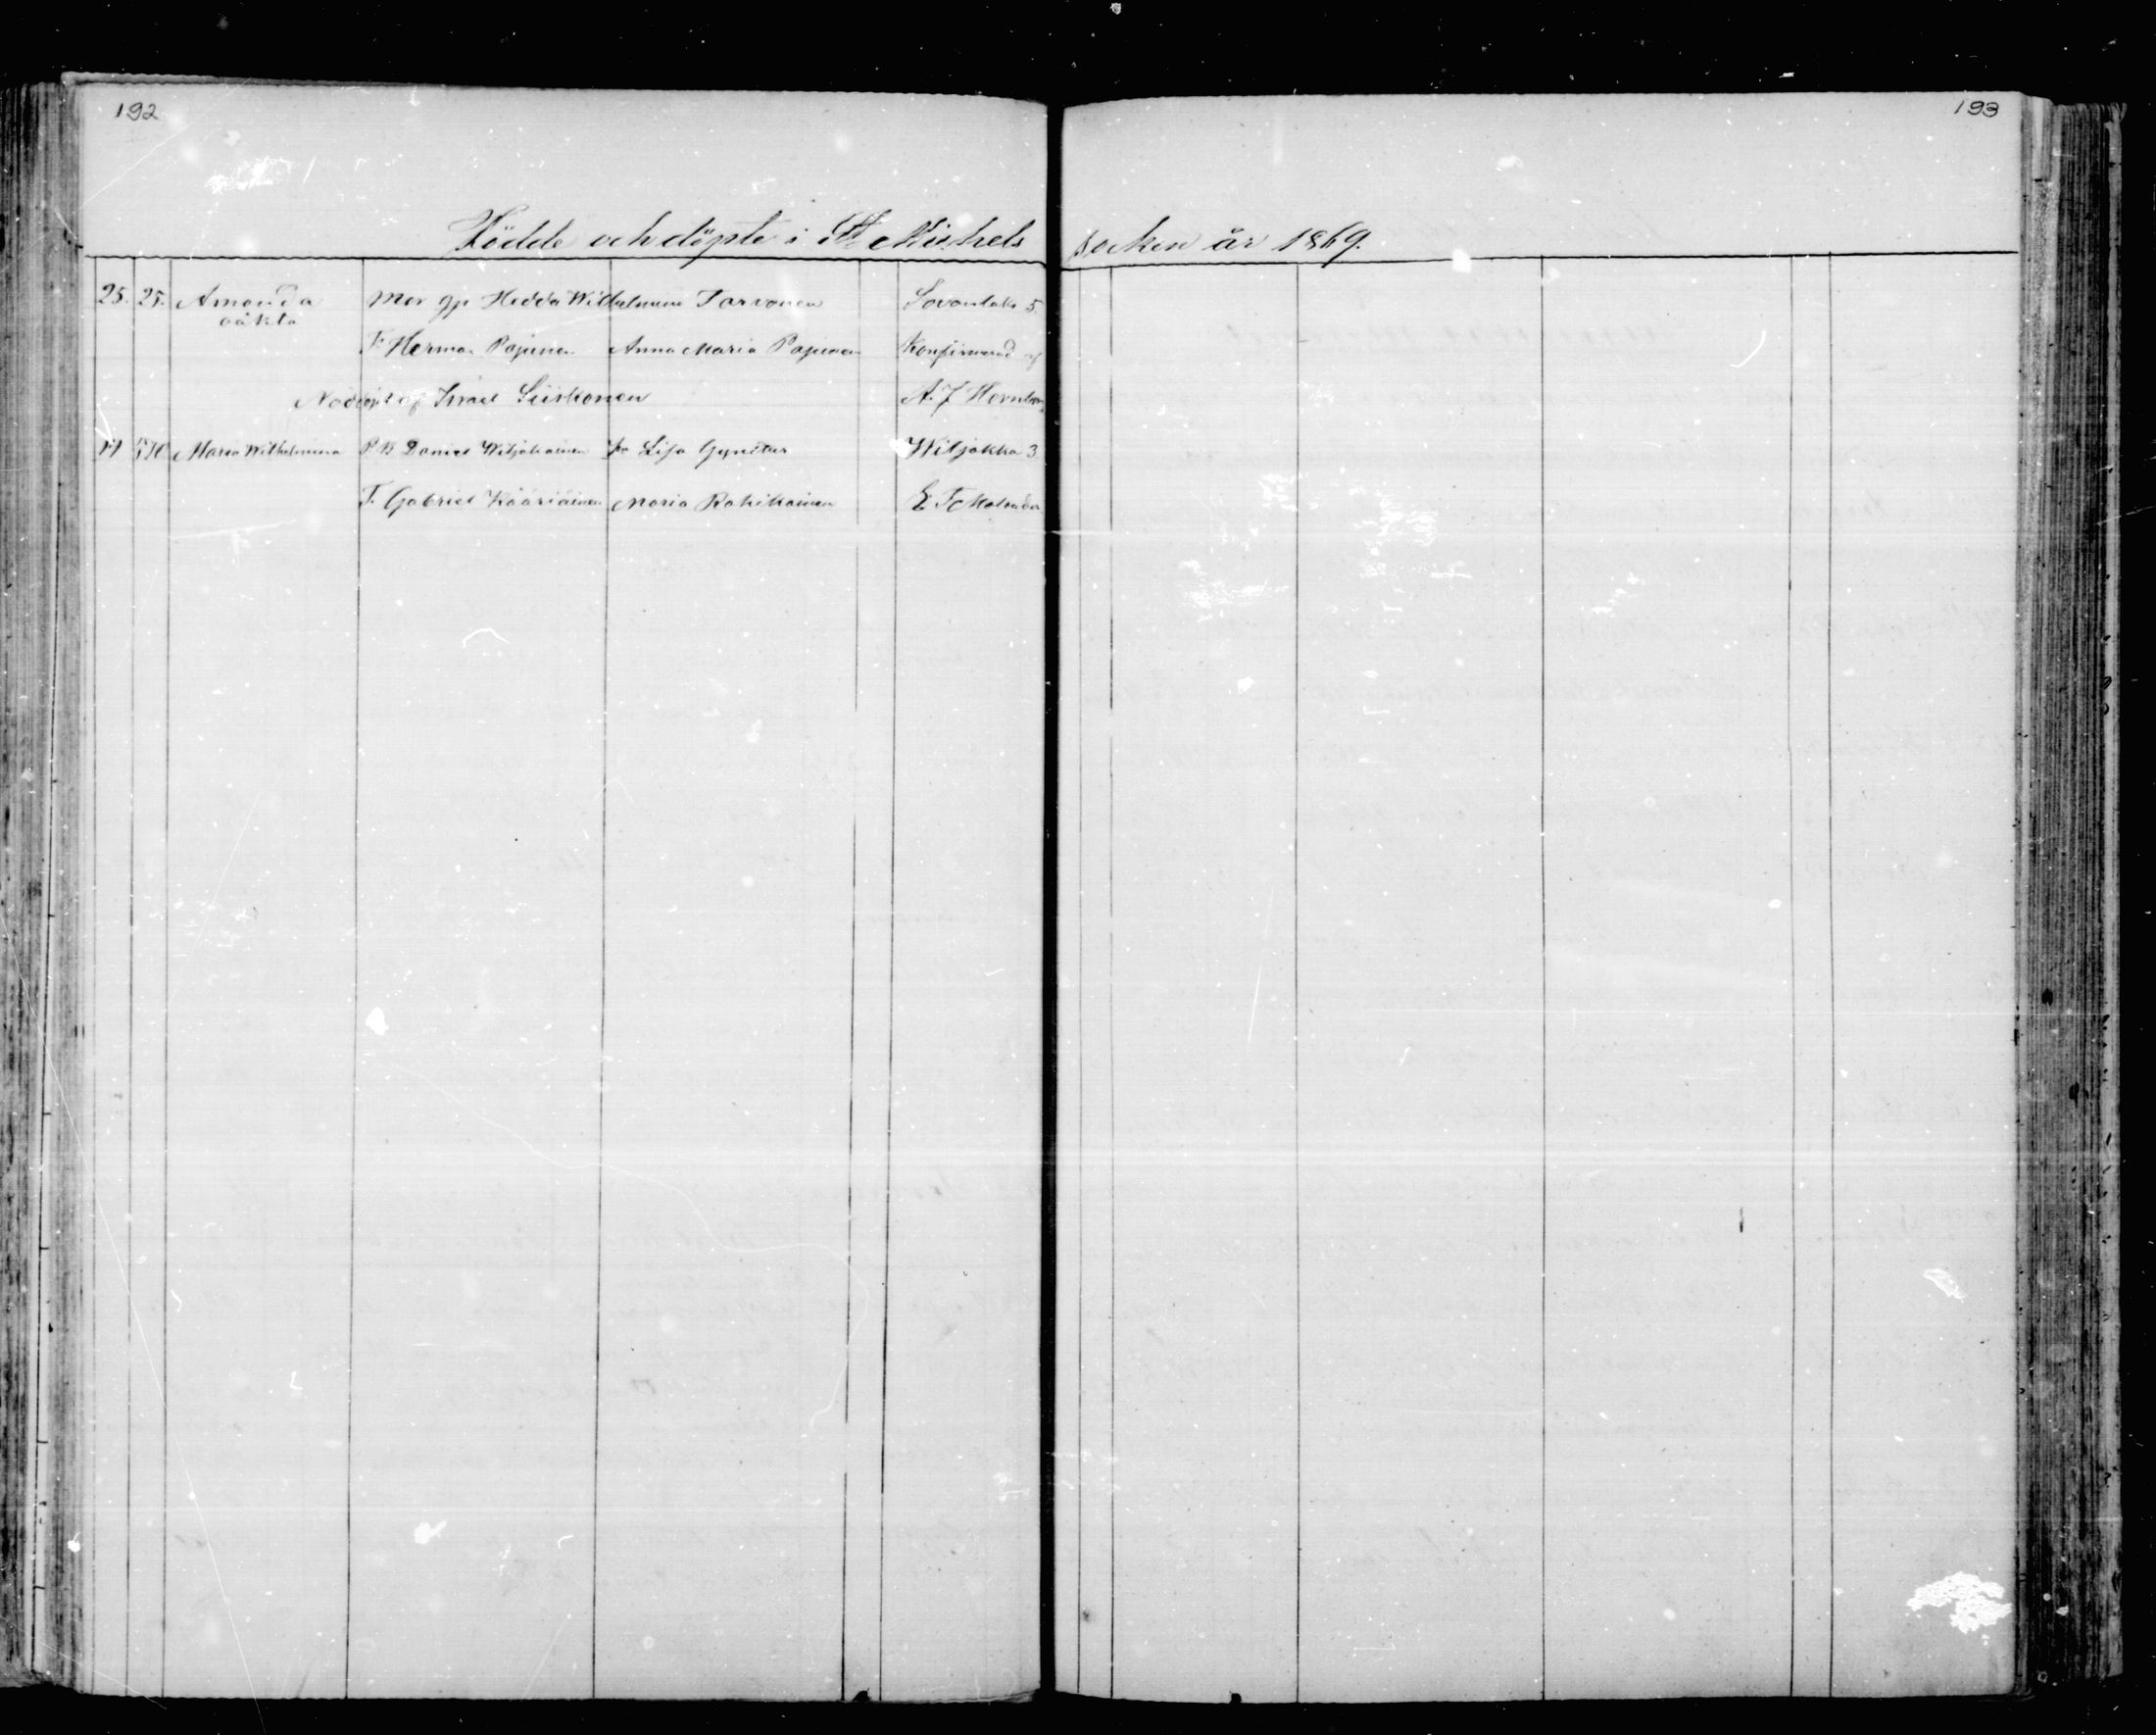 192
193
Födde och döpte i St Michels socken år 1869.
25. 25. Amanda Mor gp Hedda Wilhelmina Tarvonen Sovontaka 5.
oäkta
F. Herman Popinen Anna Maria Popinen Konfirmerad af
Nöddöpt af Israel Siiskonen A. J. Hornborg
Maria Wilhelmina Daniel Wiljakainen Lisa Gynther Wiljakka 3.
F. Gabriel Kääriäinen Maria Rahikainen E. F. Molander